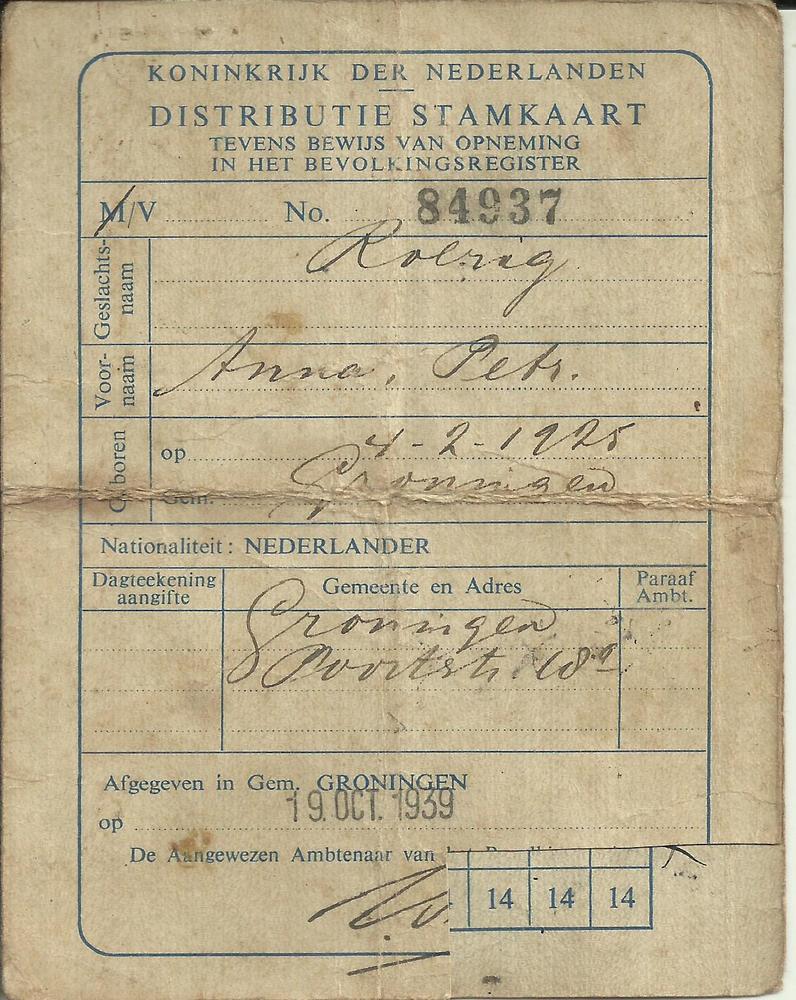 KONINKRIJK DER NEDERLANDEN
DISTRIBUTIE STAMKAART
TEVENS BEWIJS VAN OPNEMING
IN HET BEVOLKINGSREGISTER
M/V No. 84937
Geslachts-
naam
Roering
Voor-
naam
Anna, Petr.
Geboren
op 4-2-1925
Gem. Groningen
Nationaliteit: NEDERLANDER
Dagteekening
aangifte
Gemeente en Adres
Paraaf
Ambt.
Groningen
Poortstr. 18a
Afgegeven in Gem. GRONINGEN
op 19 OCT. 1939
De Aangewezen Ambtenaar van
14 14 14